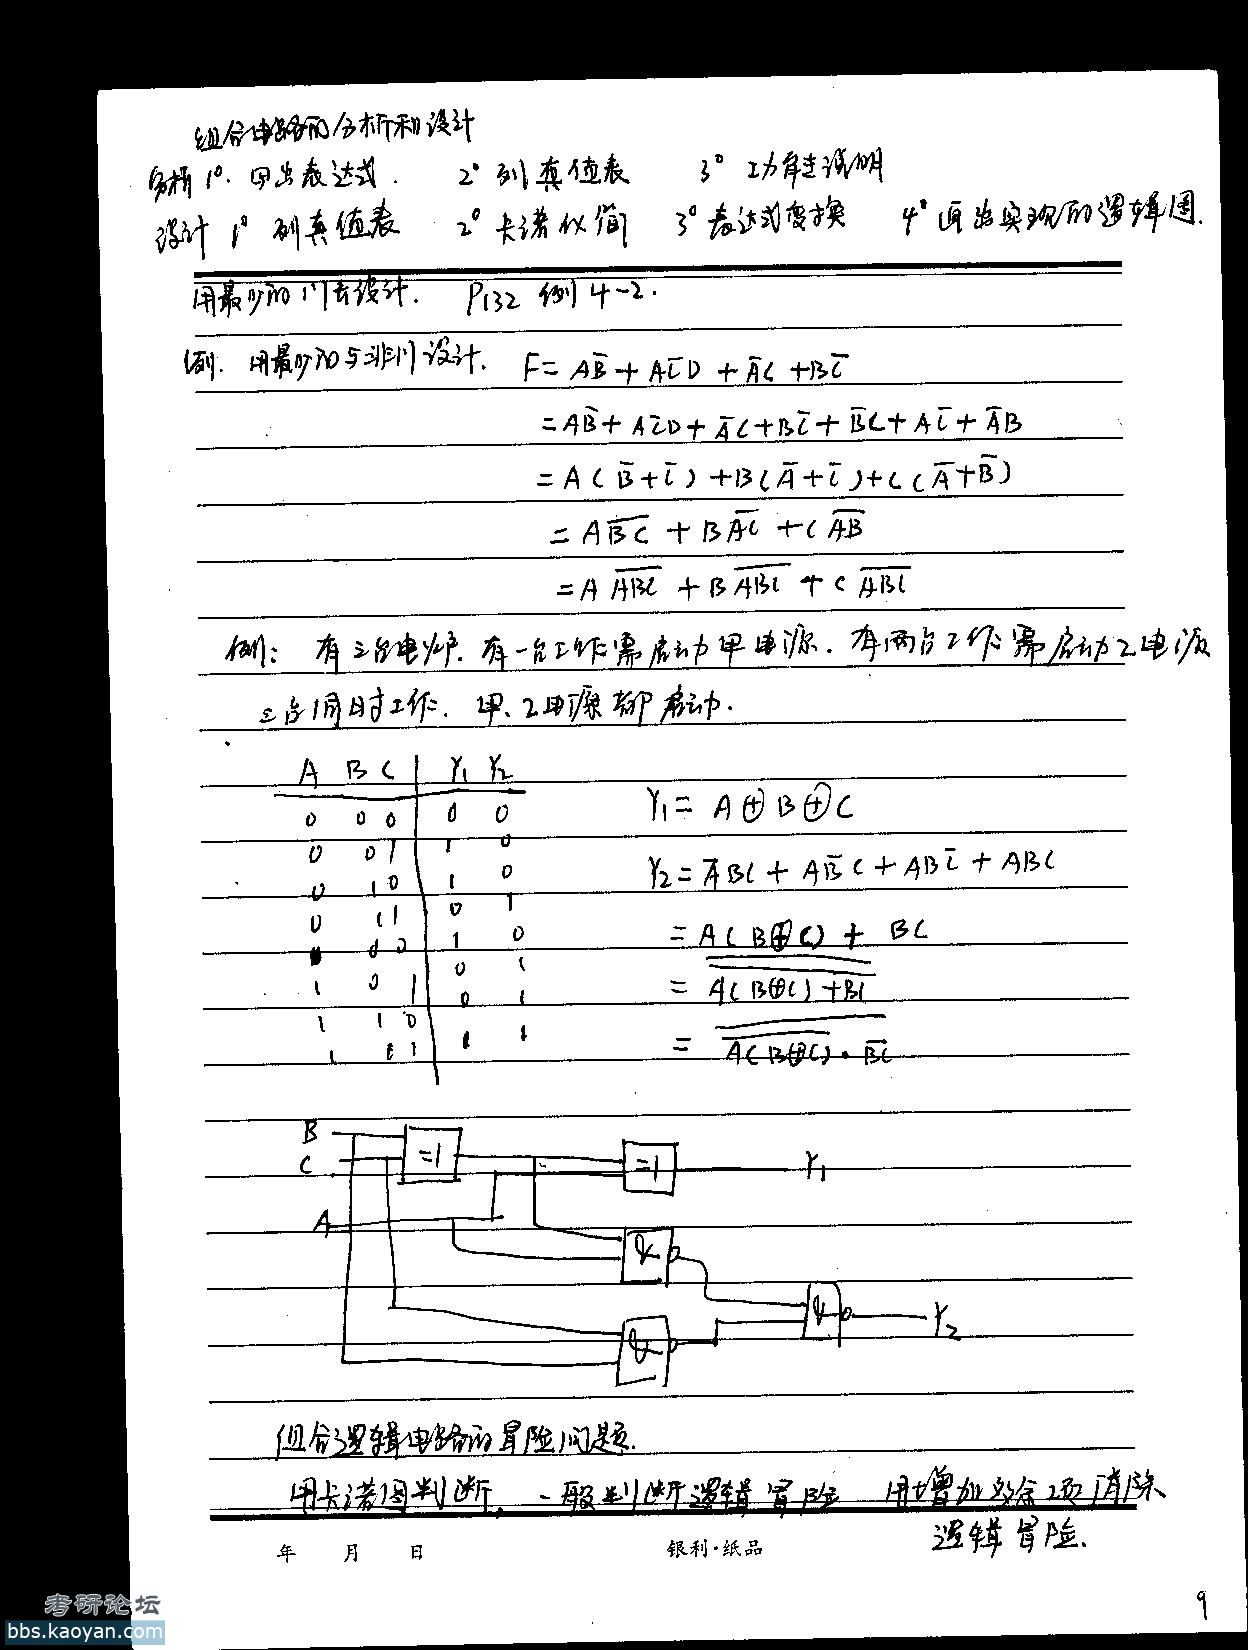 组合电路的分析和设计
分析 1°. 写出表达式. 2° 列真值表 3° 功能说明
设计 1° 列真值表 2° 卡诺化简 3° 表达式变换 4° 画出实现的逻辑图.
用最少的门去设计. P132 例4-2.
例. 用最少的与非门设计. F = AB̅ + AC̅D + A̅C + BC̅
= AB̅ + AC̅D + A̅C + BC̅ + B̅C + AC̅ + A̅B
= A(B̅+C̅) + B(A̅+C̅) + C(A̅+B̅)
= A\overline{BC} + B\overline{AC} + C\overline{AB}
= A\overline{ABC} + B\overline{ABC} + C\overline{ABC}
例: 有三台电炉. 有一台工作需启动甲电源. 有两台工作需启动乙电源
三台同时工作. 甲、乙电源都启动.
A B C Y₁ Y₂
0 0 0 0 0
0 0 1 1 0
0 1 0 1 0
0 1 1 0 1
0 0 1 0
1 0 1 0 1
1 1 0 0 1
1 1 1 1 1
Y₁ = A⊕B⊕C
Y₂ = A̅BC + AB̅C + ABC̅ + ABC
= A(B⊕C) + BC
= \overline{\overline{A(B⊕C)+BC}}
= \overline{\overline{A(B⊕C)}·\overline{BC}}
B =1 =1 Y₁
C
A
&
& Y₂
&
组合逻辑电路的冒险问题.
用卡诺图判断, 一般判断逻辑冒险 用增加多余项消除
逻辑冒险.
年 月 日 银利·纸品
9
考研论坛
bbs.kaoyan.com